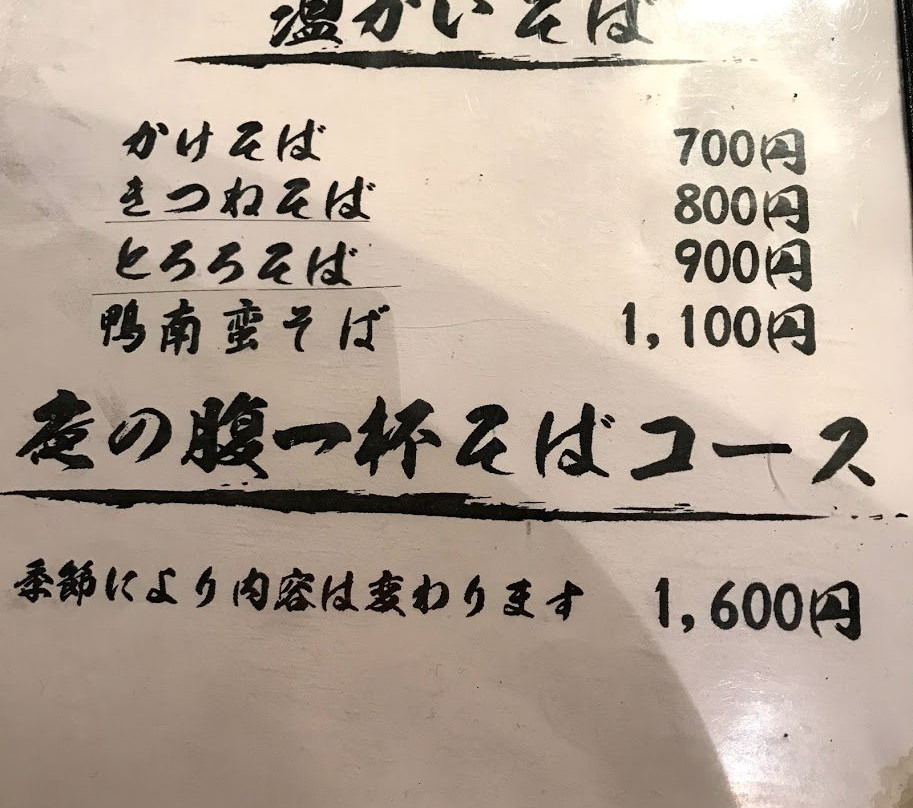 温かいそば
かけそば 700円
きつねそば 800円
とろろそば 900円
鴨南蛮そば 1,100円
夜の腹一杯そばコース
季節により内容は変わります 1,600円